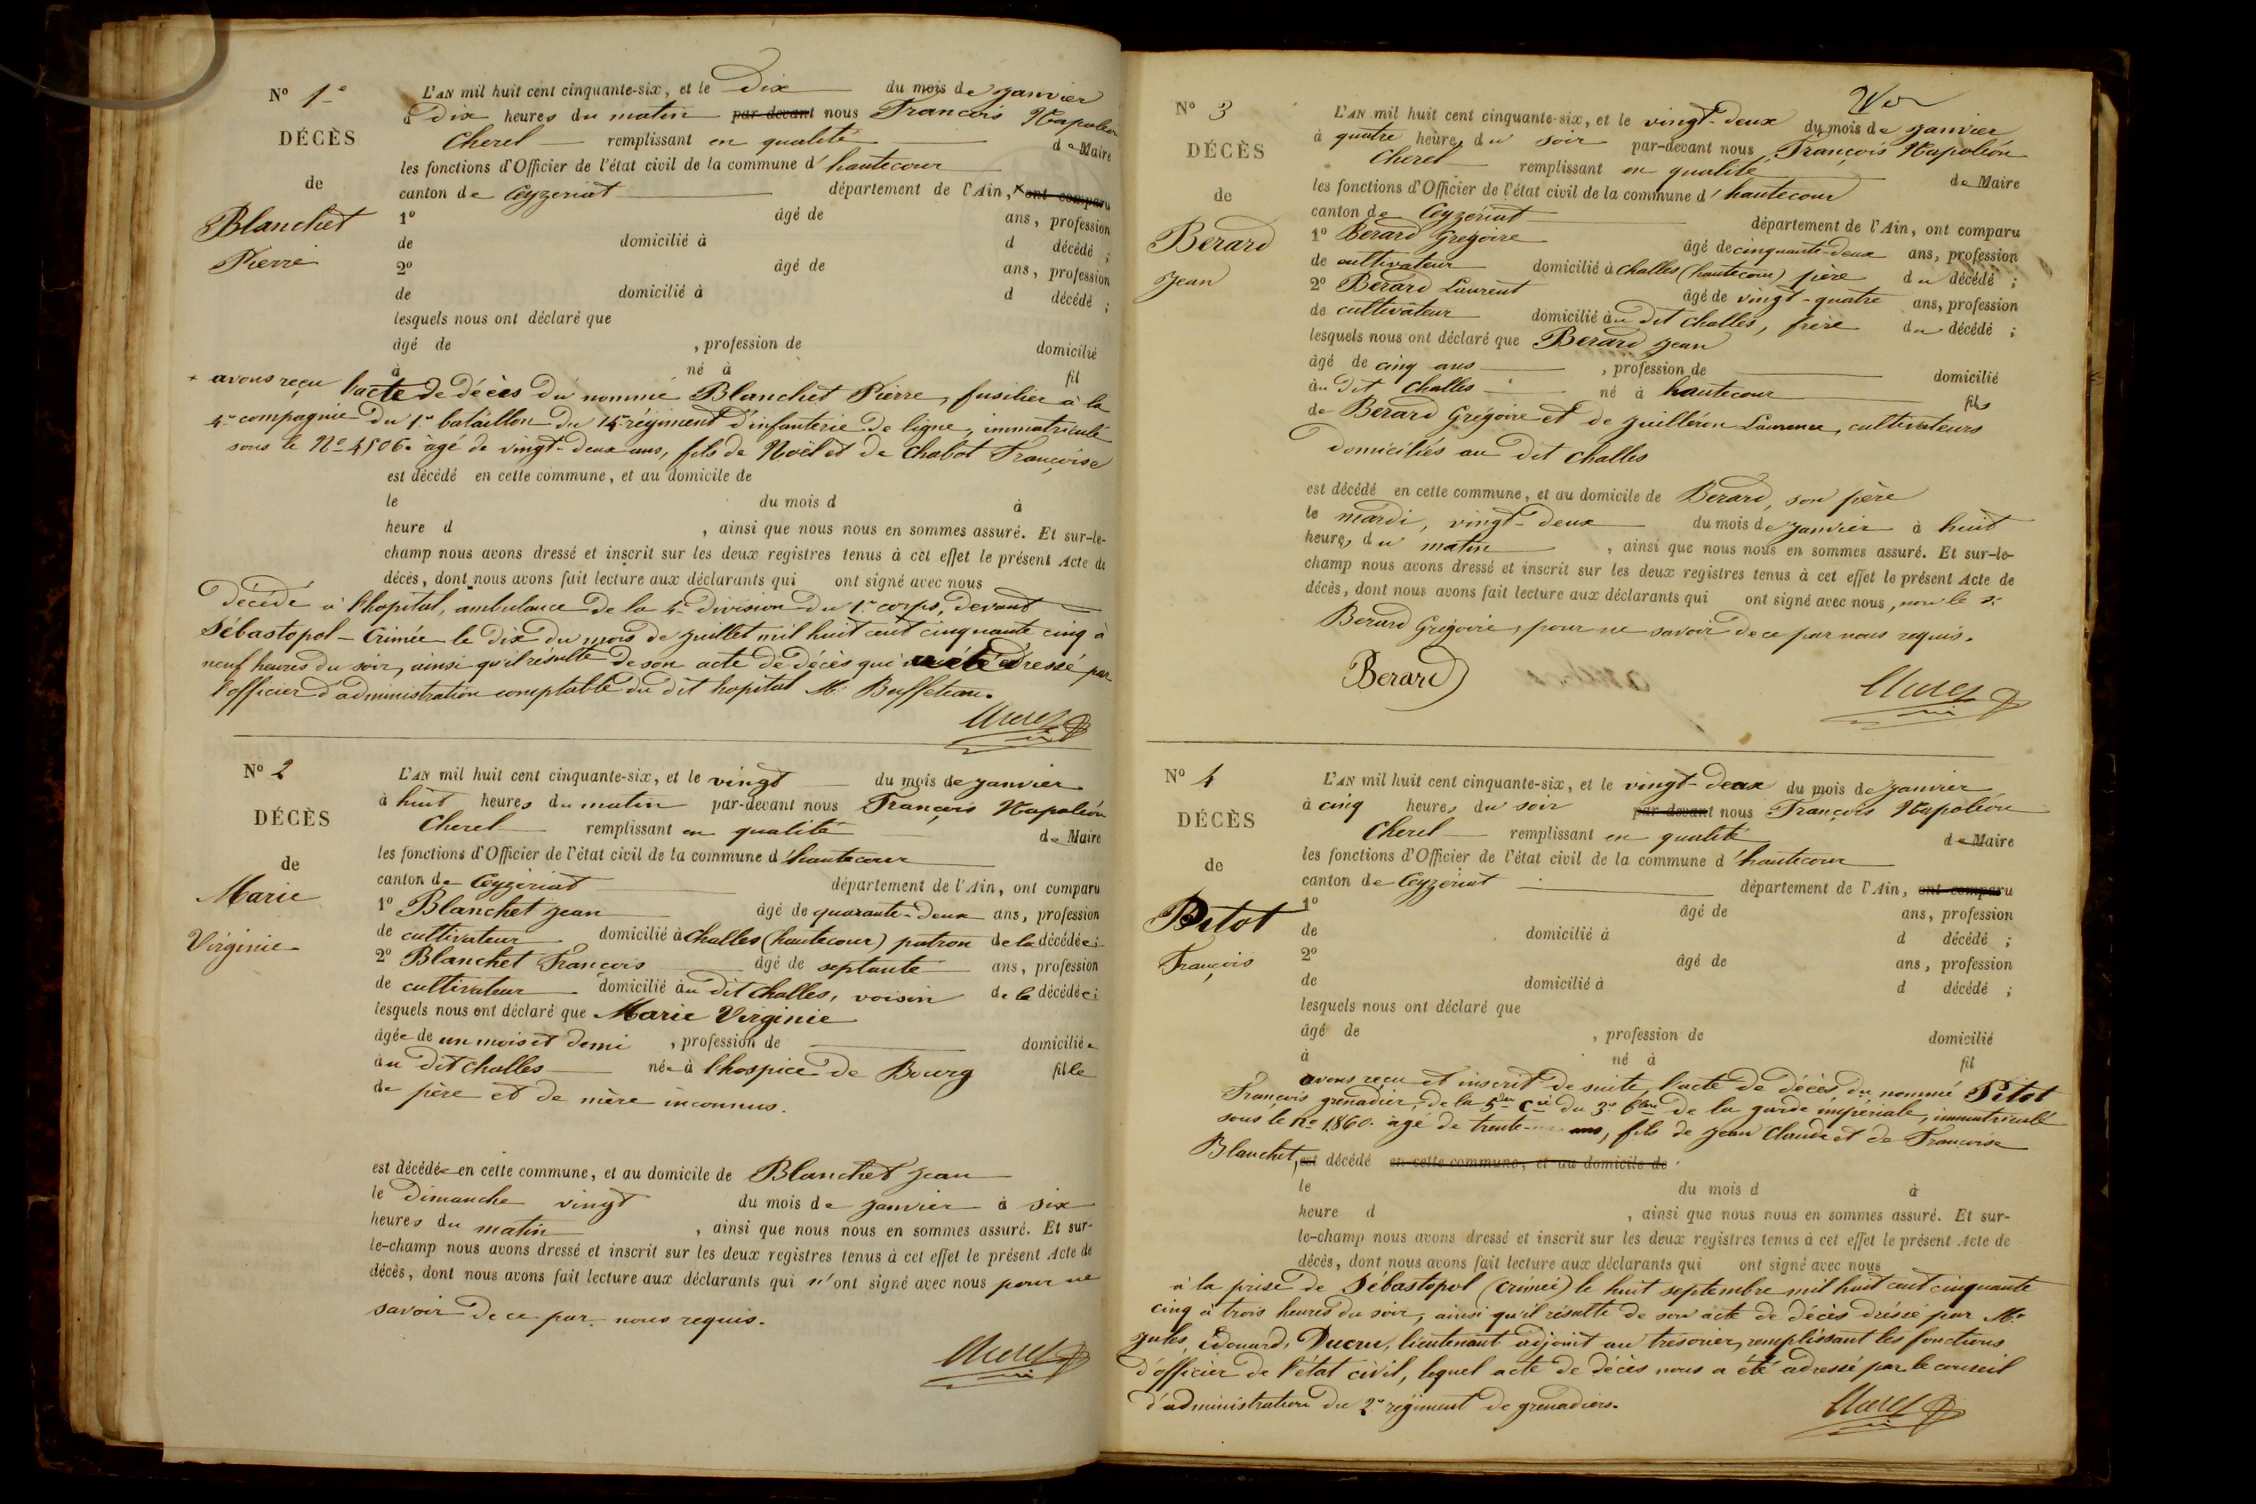 Nº 1er
DÉCÈS
de
Blanchet
Pierre
L'AN mil huit cent cinquante-six, et le Dix du mois de janvier
à Dix heures du matin par-devant nous François Napoléon
Cherel remplissant en qualité de Maire
les fonctions d'Officier de l'état civil de la commune d'hautecour
canton de Ceyzeriat département de l'Ain, × ont comparu
1º âgé de ans, profession
de domicilié à d décédé ;
2º âgé de ans, profession
de domicilié à d décédé ;
lesquels nous ont déclaré que
âgé de , profession de domicilié
à né à fil
× avons reçu l'acte de décès du nommé Blanchet Pierre, fusilier à la
4e compagnie du 1er bataillon du régiment d'infanterie de ligne, immatriculé
sous le Nº 4506. âgé de vingt-deux ans, fils de Noël et de Chabot Françoise
est décédé en cette commune, et au domicile de
le du mois d à
heure d , ainsi que nous nous en sommes assuré. Et sur-le-
champ nous avons dressé et inscrit sur les deux registres tenus à cet effet le présent Acte de
décès, dont nous avons fait lecture aux déclarants qui ont signé avec nous
Décédé à l'hopital, ambulance de la division du 1er corps, devant
Sébastopol – Crimée le Dix du mois de juillet mil huit cent cinquante cinq à
neuf heures du soir, ainsi qu'il résulte de son acte de décès qui a été dressé par
l'officier d'administration comptable du dit hopital Mr
Cherel
Nº 2
DÉCÈS
de
Marie
Virginie
L'AN mil huit cent cinquante-six, et le vingt du mois de janvier
à huit heures du matin par-devant nous François Napoléon
Cherel remplissant en qualité de Maire
les fonctions d'Officier de l'état civil de la commune d'hautecour
canton de Ceyzériat département de l'Ain, ont comparu
1º Blanchet Jean âgé de quarante-deux ans, profession
de cultivateur domicilié à Challes (hautecour) patron de la décédée ;
2º Blanchet François âgé de septante ans, profession
de cultivateur domicilié au dit Challes, voisin de la décédée ;
lesquels nous ont déclaré que Marie Virginie
âgée de un mois et demi , profession de domiciliée
au dit Challes née à l'hospice de Bourg fille
de père et de mère inconnus.
est décédée en cette commune, et au domicile de Blanchet Jean
le Dimanche vingt du mois de janvier à six
heures du matin , ainsi que nous nous en sommes assuré. Et sur-
le-champ nous avons dressé et inscrit sur les deux registres tenus à cet effet le présent Acte de
décès, dont nous avons fait lecture aux déclarants qui n'ont signé avec nous pour ne
savoir de ce par nous requis.
Cherel
Nº 3
DÉCÈS
de
Berard
Jean
L'AN mil huit cent cinquante-six, et le vingt-deux du mois de janvier
à quatre heures du soir par-devant nous François Napoléon
Cherel remplissant en qualité de Maire
les fonctions d'Officier de l'état civil de la commune d'hautecour
canton de Ceyzériat département de l'Ain, ont comparu
1º Berard Grégoire âgé de cinquante-deux ans, profession
de cultivateur domicilié à Challes (hautecour) père du décédé ;
2º Berard Laurent âgé de vingt-quatre ans, profession
de cultivateur domicilié au dit Challes, frère du décédé ;
lesquels nous ont déclaré que Berard Jean
âgé de cinq ans , profession de domicilié
au dit Challes né à hautecour fils
de Berard Grégoire et de Guilléron Laurence, cultivateurs
domiciliés au dit Challes
est décédé en cette commune, et au domicile de Berard, son père
le mardi, vingt-deux du mois de janvier à huit
heures du matin , ainsi que nous nous en sommes assuré. Et sur-le-
champ nous avons dressé et inscrit sur les deux registres tenus à cet effet le présent Acte de
décès, dont nous avons fait lecture aux déclarants qui ont signé avec nous, non le
Berard Grégoire, pour ne savoir de ce par nous requis.
Berard Cherel
Nº 4
DÉCÈS
de
Pitot
François
L'AN mil huit cent cinquante-six, et le vingt-deux du mois de janvier
à cinq heures du soir par-devant nous François Napoléon
Cherel remplissant en qualité de Maire
les fonctions d'Officier de l'état civil de la commune d'hautecour
canton de Ceyzériat département de l'Ain, ont comparu
1º âgé de ans, profession
de domicilié à d décédé ;
2º âgé de ans, profession
de domicilié à d décédé ;
lesquels nous ont déclaré que
âgé de , profession de domicilié
à né à fil
avons reçu et inscrit de suite l'acte de décès du nommé Pitot
François grenadier, de la Cie du 3e de la garde impériale, immatriculé
sous le nº 1860. âgé de trente ans, fils de Jean Claude et de Françoise
Blanchet, est décédé en cette commune, et au domicile de
le du mois d à
heure d , ainsi que nous nous en sommes assuré. Et sur-
le-champ nous avons dressé et inscrit sur les deux registres tenus à cet effet le présent Acte de
décès, dont nous avons fait lecture aux déclarants qui ont signé avec nous
à la prise de Sébastopol (Crimée) le huit septembre mil huit cent cinquante
cinq à trois heures du soir, ainsi qu'il résulte de son acte de décès dressé par Mr
Jules, Edouard, Ducru, lieutenant adjoint au trésorier, remplissant les fonctions
d'officier de l'état civil, lequel acte de décès nous a été adressé par le conseil
d'administration du 2e régiment de grenadiers.
Cherel